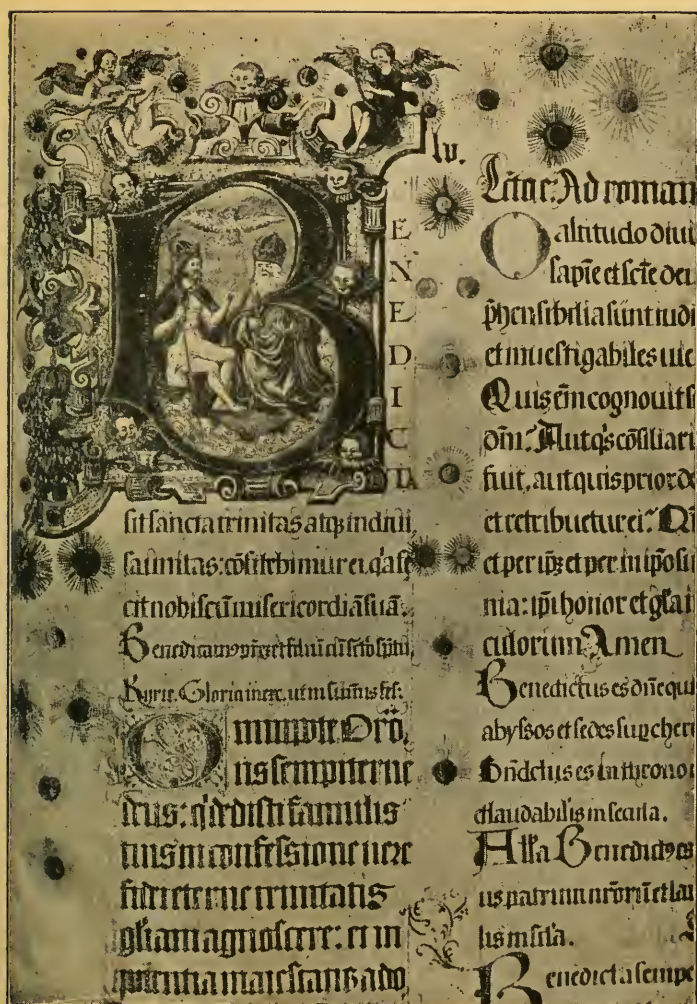 B
E
N
E
D
I
C
TA
sit sancta trinitas atq; indiui
sa unitas: cõfitebimur ei. q'a fe
cit nobiscũ misericordiã suã:
Benedicamus p̃rẽ et filiũ cũ scto spiritu,
Kyrie. Gloria in exc. ut in sũmis fes.
Omnipote Orõ,
ns sempiterne
deus: q'dedisti famulis
tuis in confessione uere
fidei eterne trinitatis
gliam agnoscere: et in
potentia maiestatis ado,
lv.
Ad roman
O altitudo diui
sapie et scie dei
p̃hensibilia sunt iudi
et inuestigabiles uie
Quis em cognouit s
dñi? Aut q's cõsiliari
fuit. aut quis prior de
et retribuetur ei? Qm
et per ipz et per in ipo su
nia: ipi honor et gla i
culorum. Amen
Benedictus es dñe qui
abyssos et sedes sup cheri
Bñdctus es in throno
et laudabilis in secula.
Alla Benedictus es
us patrum nrorũ et lau
lis in scła.
Benedicta sempe